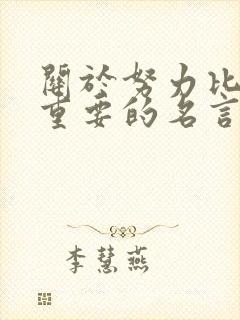 關於努力比
重要的名言
李慧燕